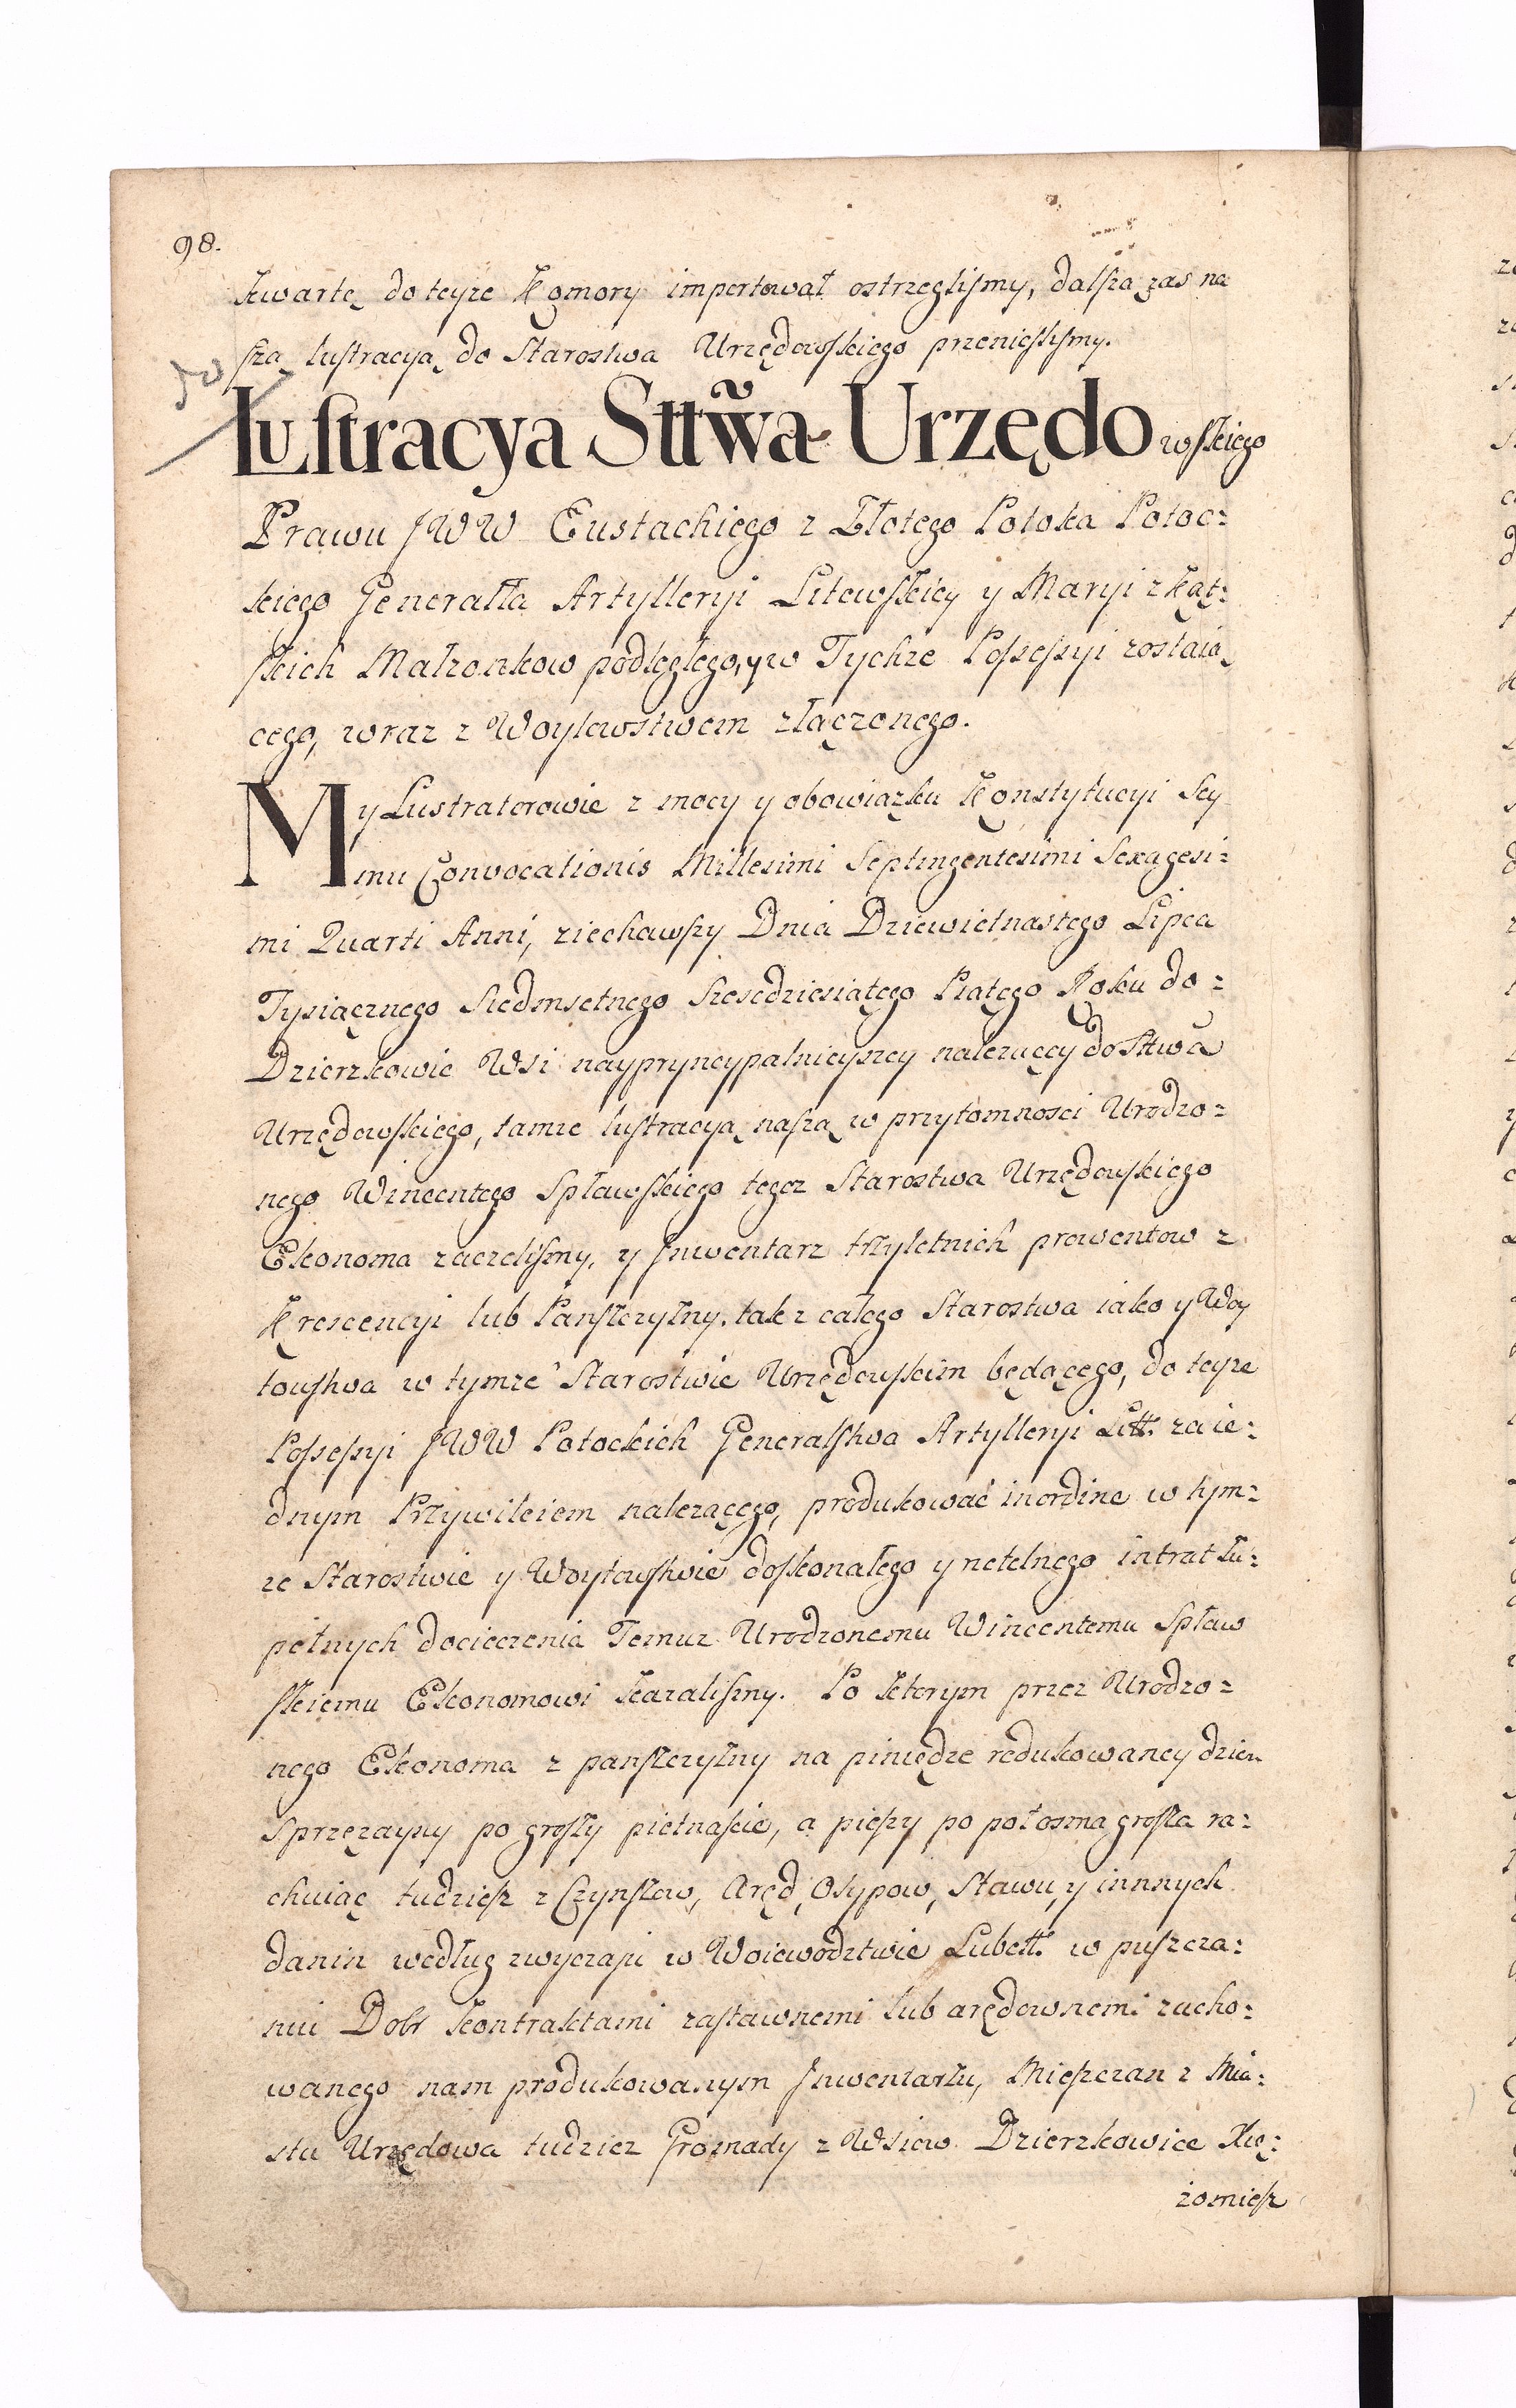 98.
kwartę do teyze Komory importował ostrzegliſmy, dalſza zas na
ſzą luſtracyą do Starostwa Urzędowſkiego przenieſliſmy.
Luſtracya Sttwa Urzędowſkiego
Prawu JWW Eustachiego z Złotego Potoka Potoc:
kiego Generałła Artylleryi Litewſkiey y Maryi z Kąt:
ſkich Małzonkow podległego, y w Tychze Poſseſsyi zostaią
cego, wraz z Woytowstwem złączonego.
My Lustratorowie z mocy y obowiązku Konstytucyi Sey
mu Convocationis Millesimi Septingentesimi Sexagesi:
mi Quarti Anni, ziechawſzy Dnia Dziewietnastego Lipca
Tysiącznego Siedmsetnego Szescdziesiątego Piątego Roku do:
Dzierzkowic Wsi naypryncypalnieyszey nalezucey do Sttwa
Urzędowſkiego, tamze luſtracyą naſzą w przytomnosci Urodzo:
nego Wincentego Spławſkiego tegoz Starostwa Urzędowſkiego
Ekonoma zaczeliſmy, y Jnwentarz trzyletnich prowentow z
Krescencyi lub Panſzczyzny, tak z całego Starostwa iako y Woy
towſtwa w tymze Starostwie Urzędowſkim będącego, do teyze
Poſseſsyi JWW Potockich Generalſtwa Artylleryi Litt. za ie:
dnym Przywileiem nalezącego, produkować in ordine w tym:
ze Starostwie y Woytowſtwie doſkonałego y netelnego intrat Zu:
pełnych docieczenia Temuz Urodzonemu Wincentemu Spław
ſkiemu Ekonomowi kazaliſmy. Po ktorym przez Urodzo:
nego Ekonoma z panſzczyzny na piniędze redukowaney dzien
sprzezayny po groſzy pietnaſcie, a pieſzy po poł osma groſza ra:
chuiąc tudzieſz z Czynſzow, Aręd, Osypow, Stawu, y innnych
danin według zwyczaju w Woiewodztwie Lubett. w puſzcza:
niu Dobr kontraktami zaſtawnemi lub arędownemi zacho:
wanego nam produkowanym Jnwentarzu, Mieſzczan z Mia:
sta Urzędowa tudziez Gromady z Wsiow Dzierzkowice Xię:
żomieſz